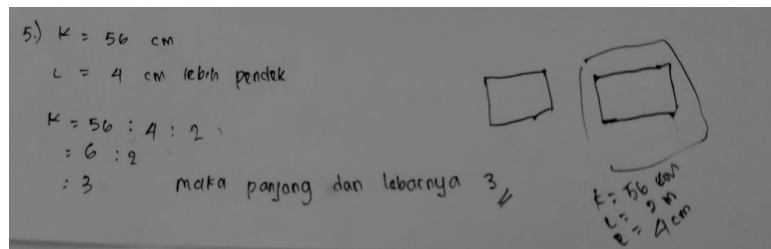 5.) K = 56 cm
L = 4 cm lebih pendek
K = 56 : 4 : 2
= 6 : 2
: 3 maka panjang dan lebarnya 3
K = 56 cm
L = 2 m
= 4 cm